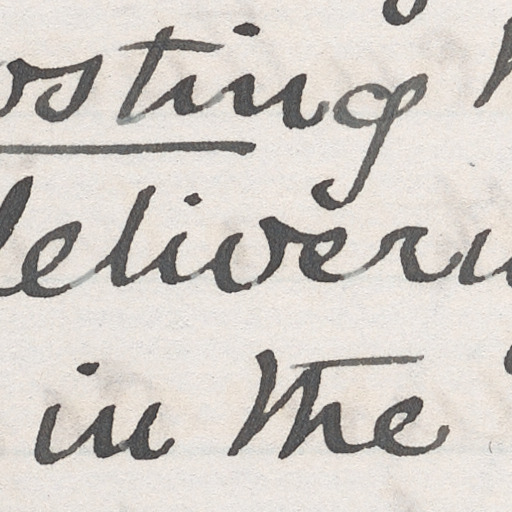 osting
delivery
in the